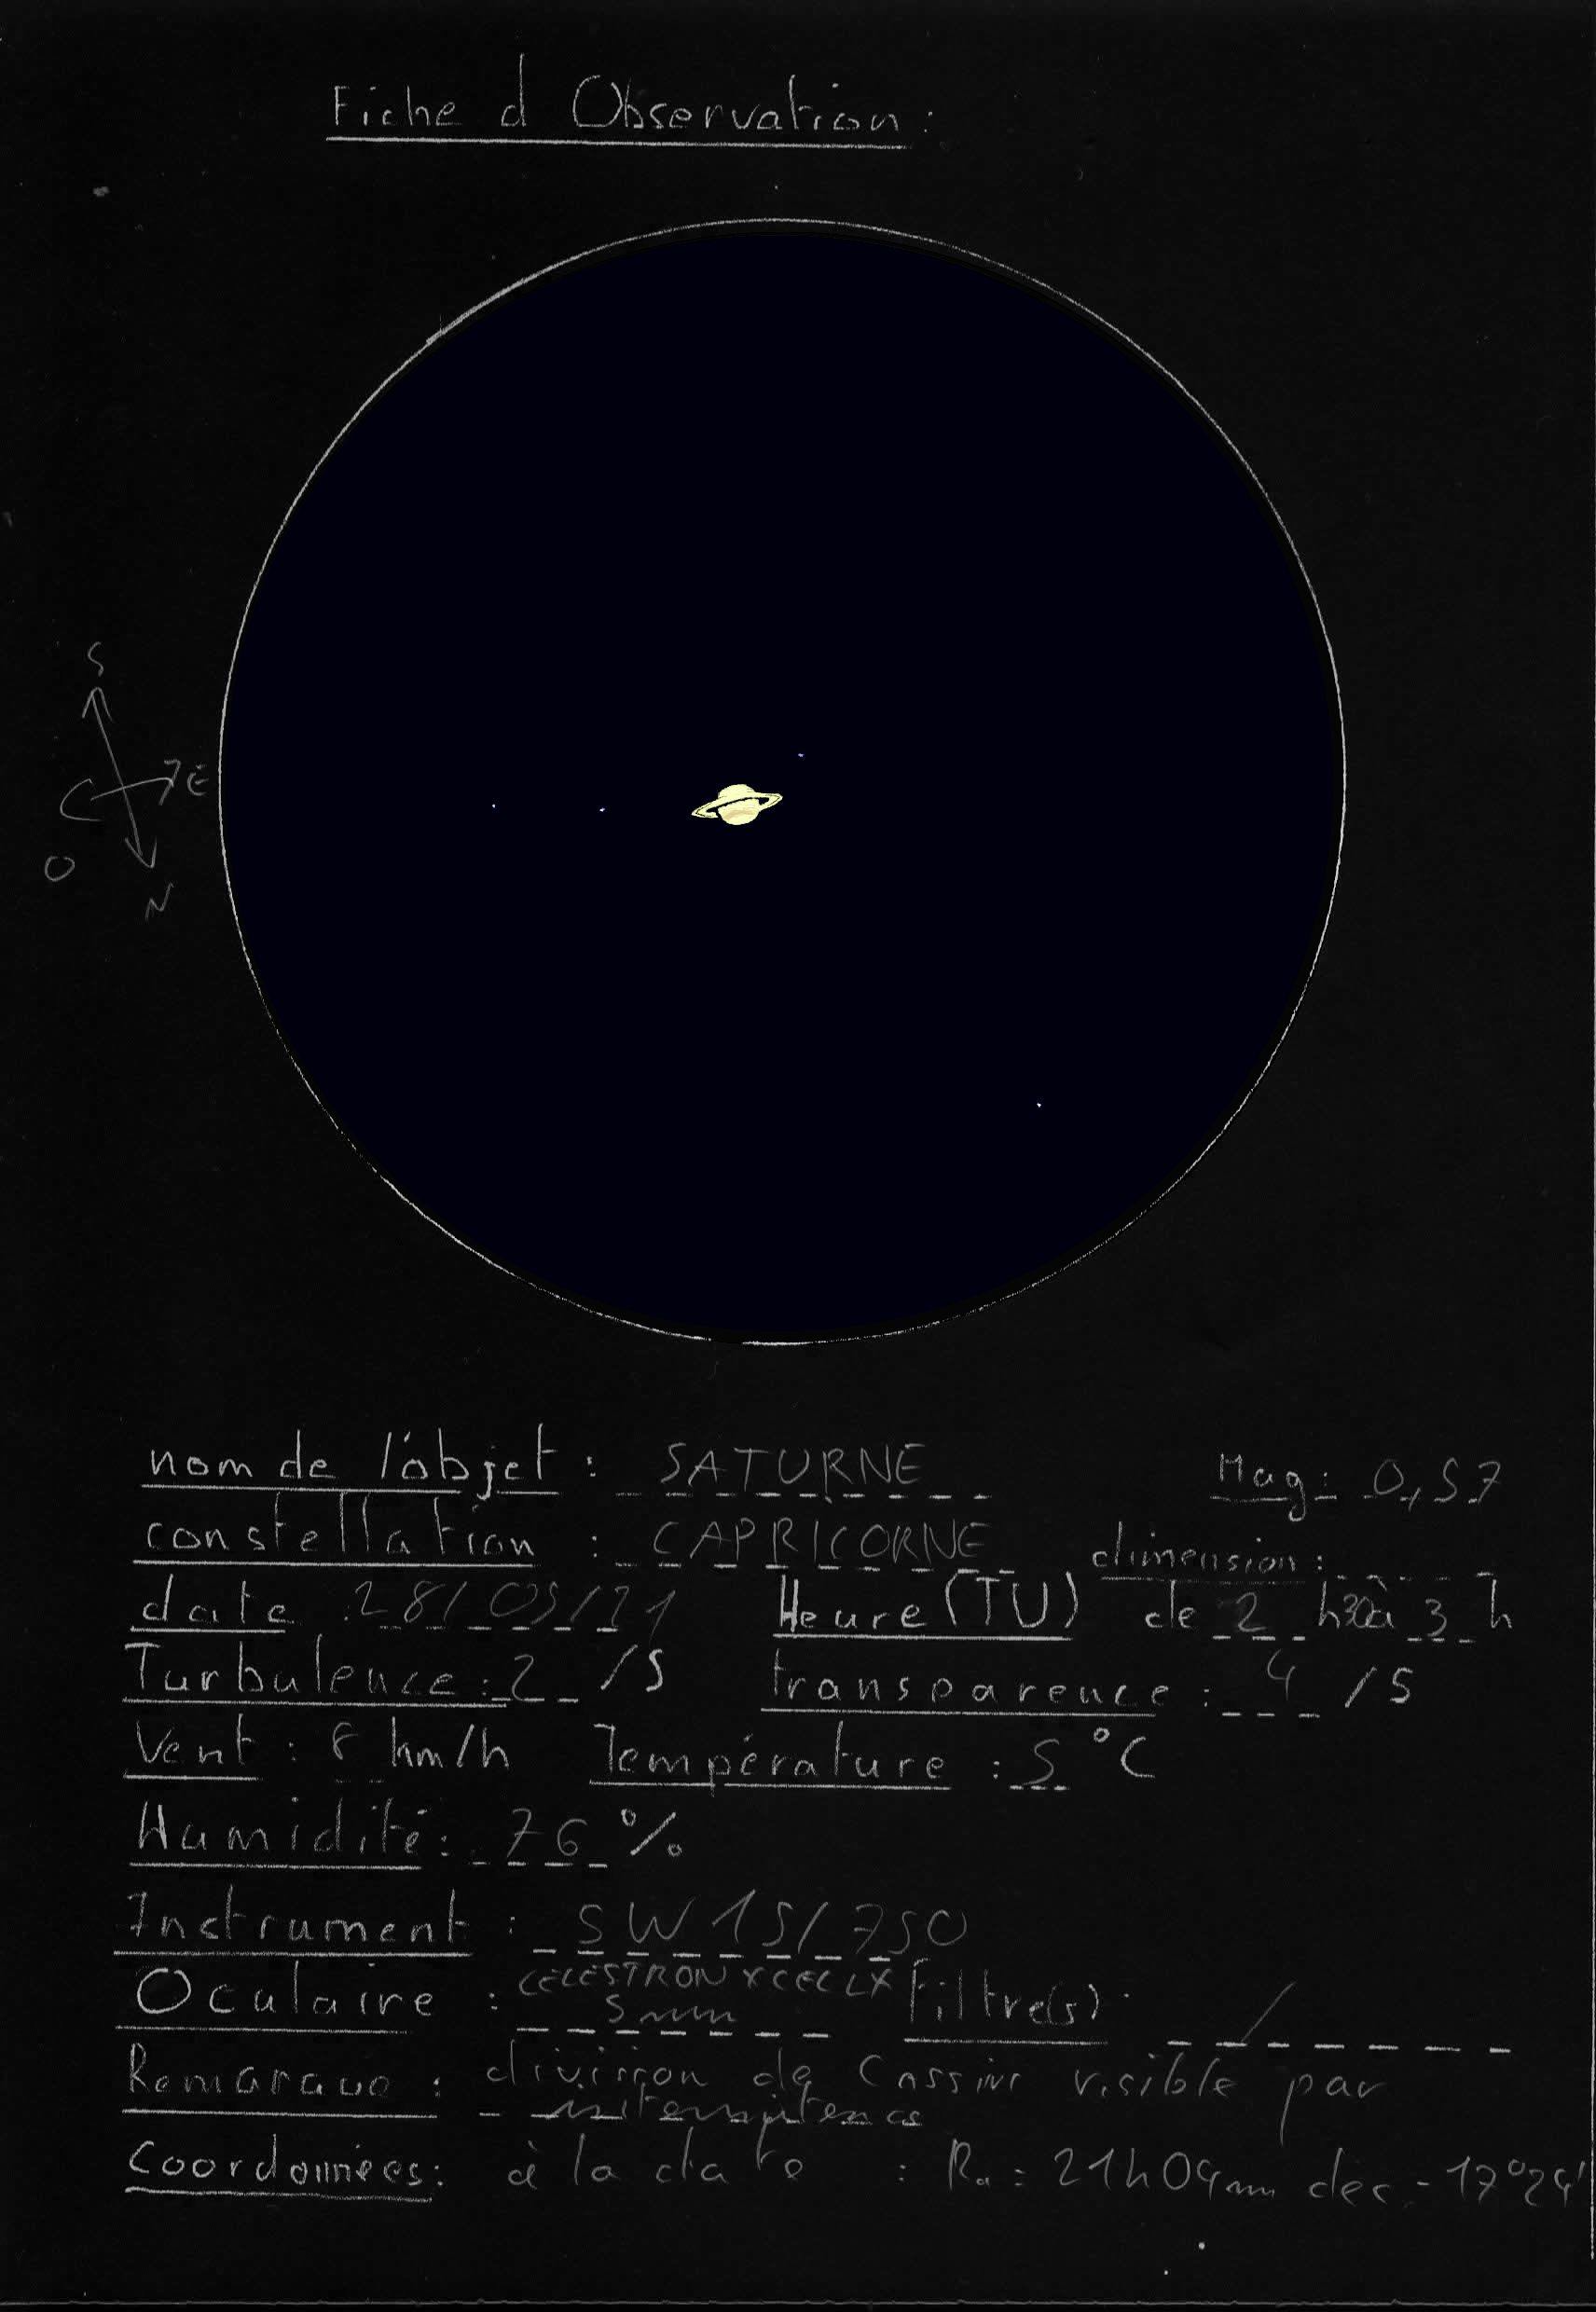 Fiche d Observation :
S
E
O
N
nom de l'objet : SATURNE Mag : 0,57
constellation : CAPRICORNE dimension :
date : 28/05/21 Heure (TU) de 2 h30 à 3 h
Turbulence : 2 /5 transparence : 4 /5
Vent : 8 km/h Température : 5 °C
Humidité : 76 %
Instrument : SW 15/750
Oculaire : CELESTRON XCEL LX Filtre(s) : /
5mm
Remarque : division de Cassini visible par
intermitence
Coordonnées : à la date : Ra = 21h09m dec - 17°24'